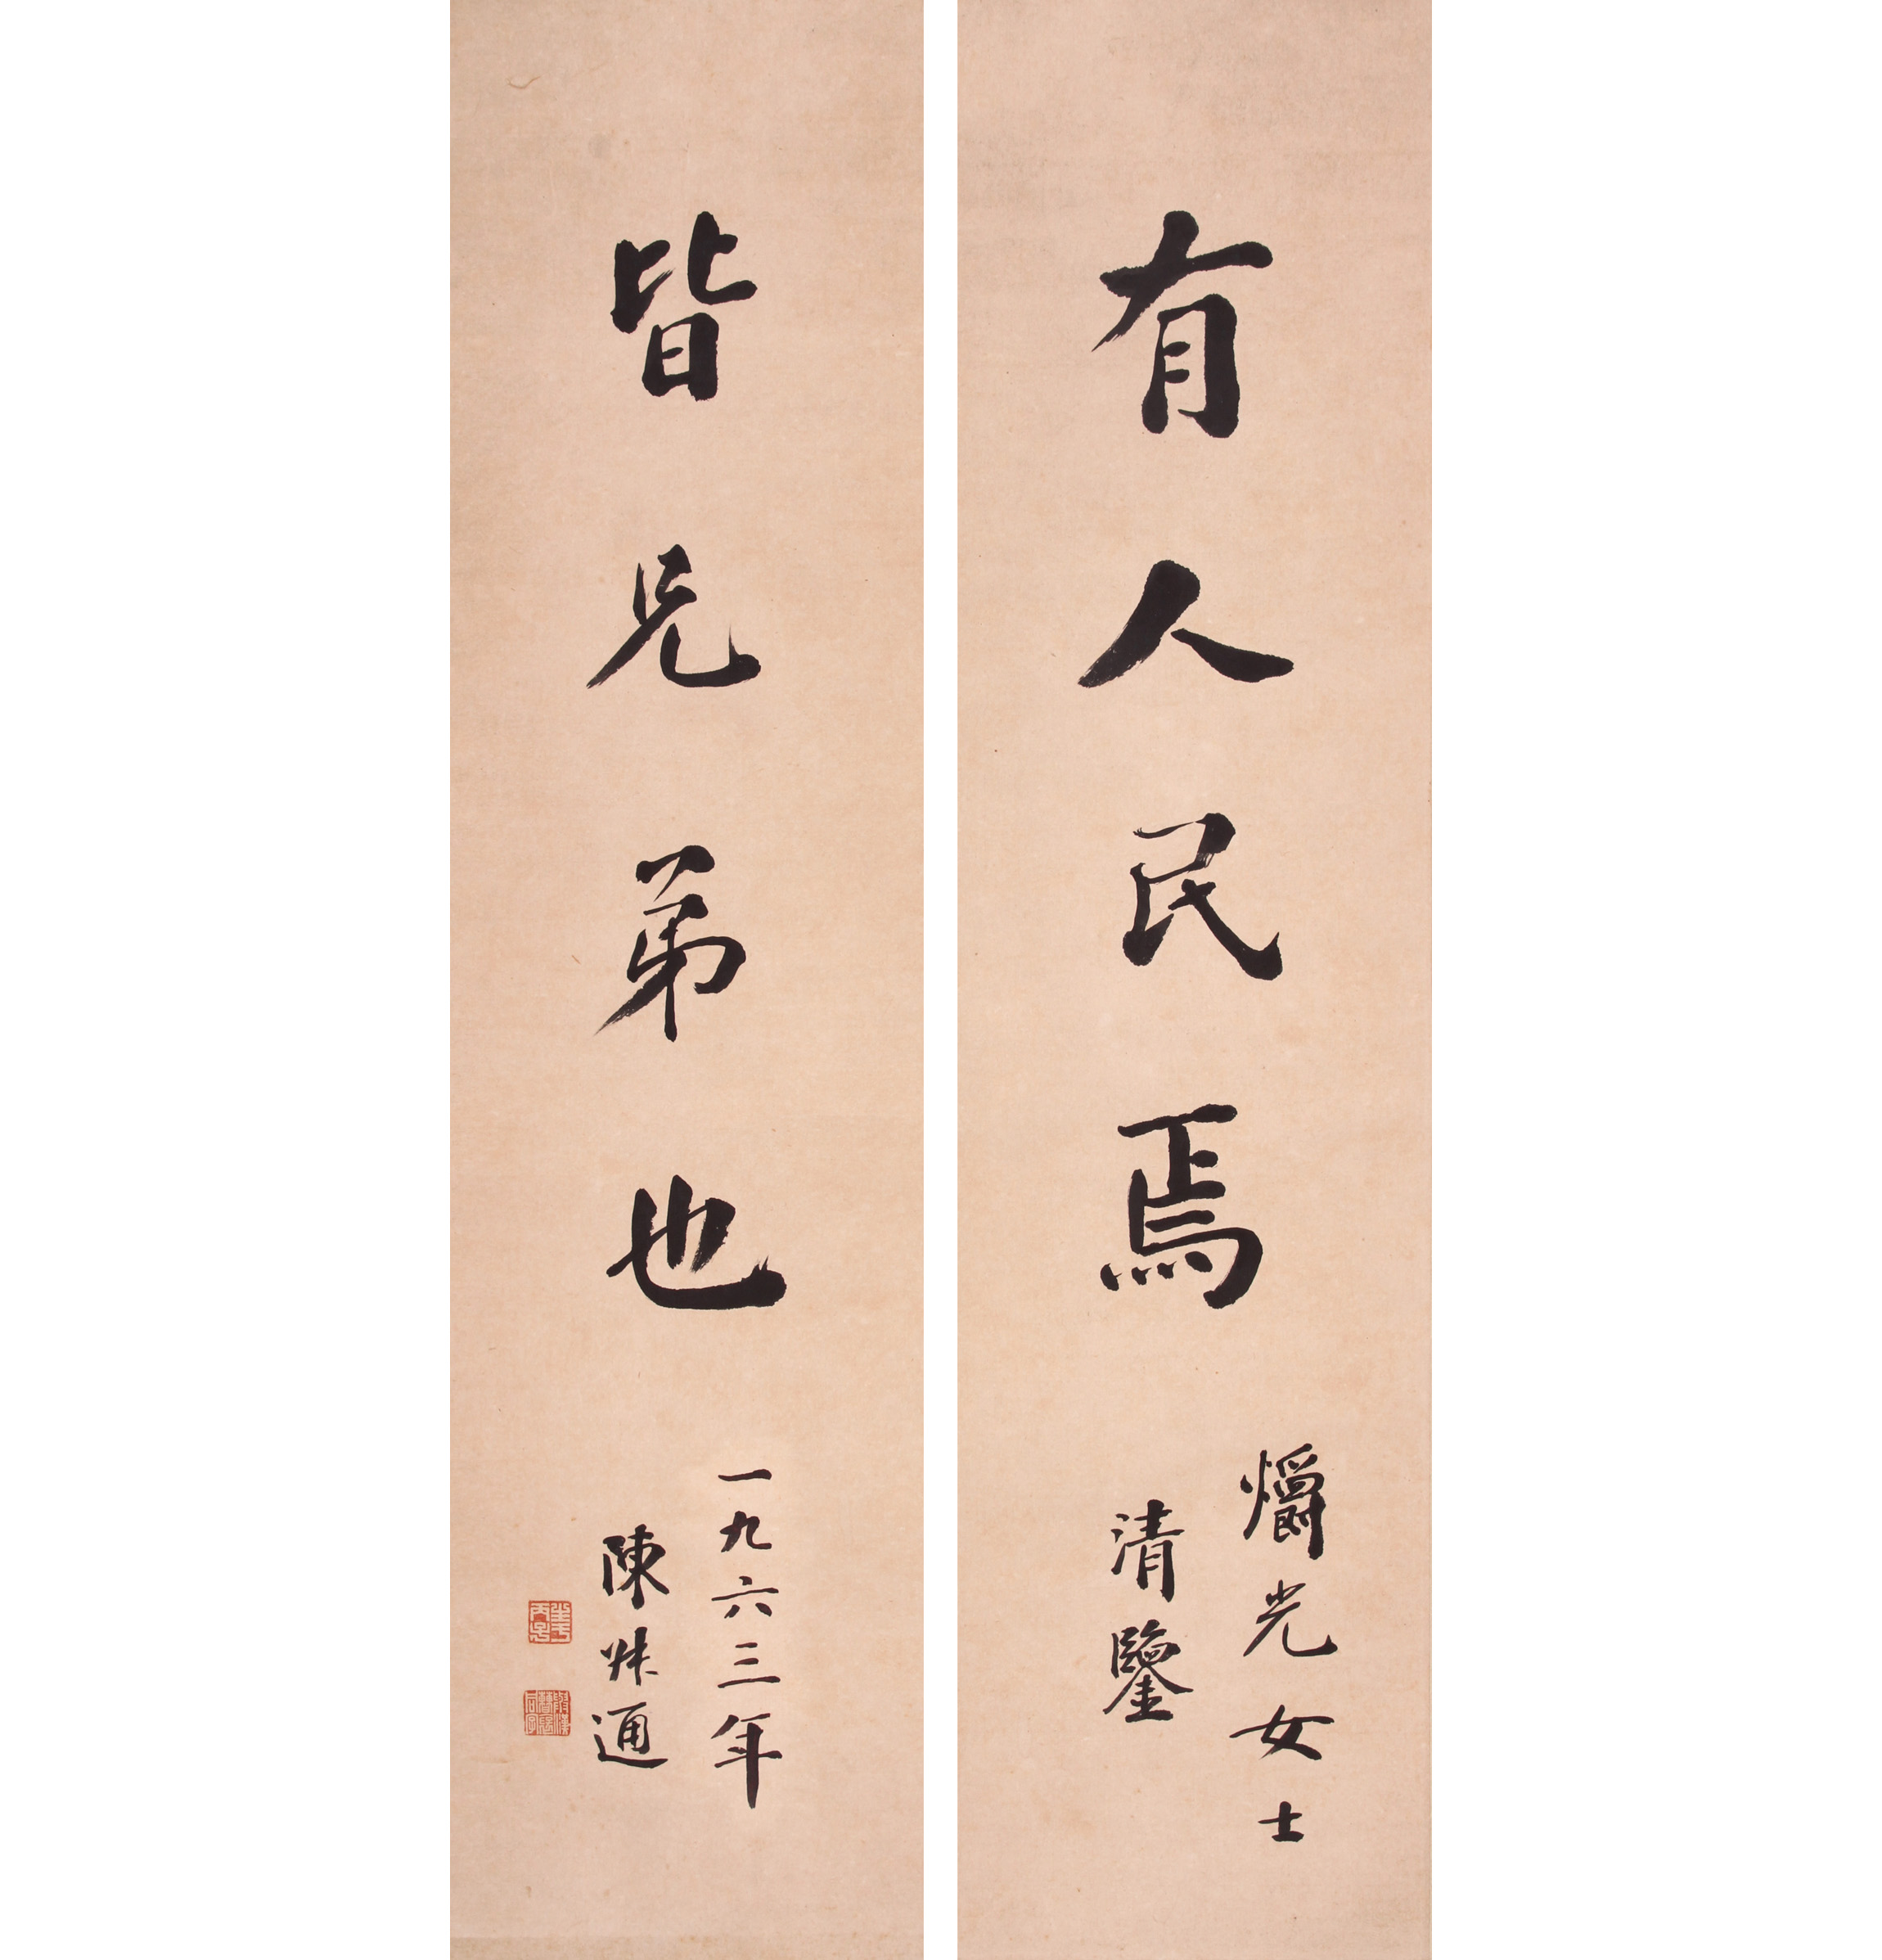 有人民焉
爝光女士
清鑒
皆兄弟也
一九六三年
陳叔通